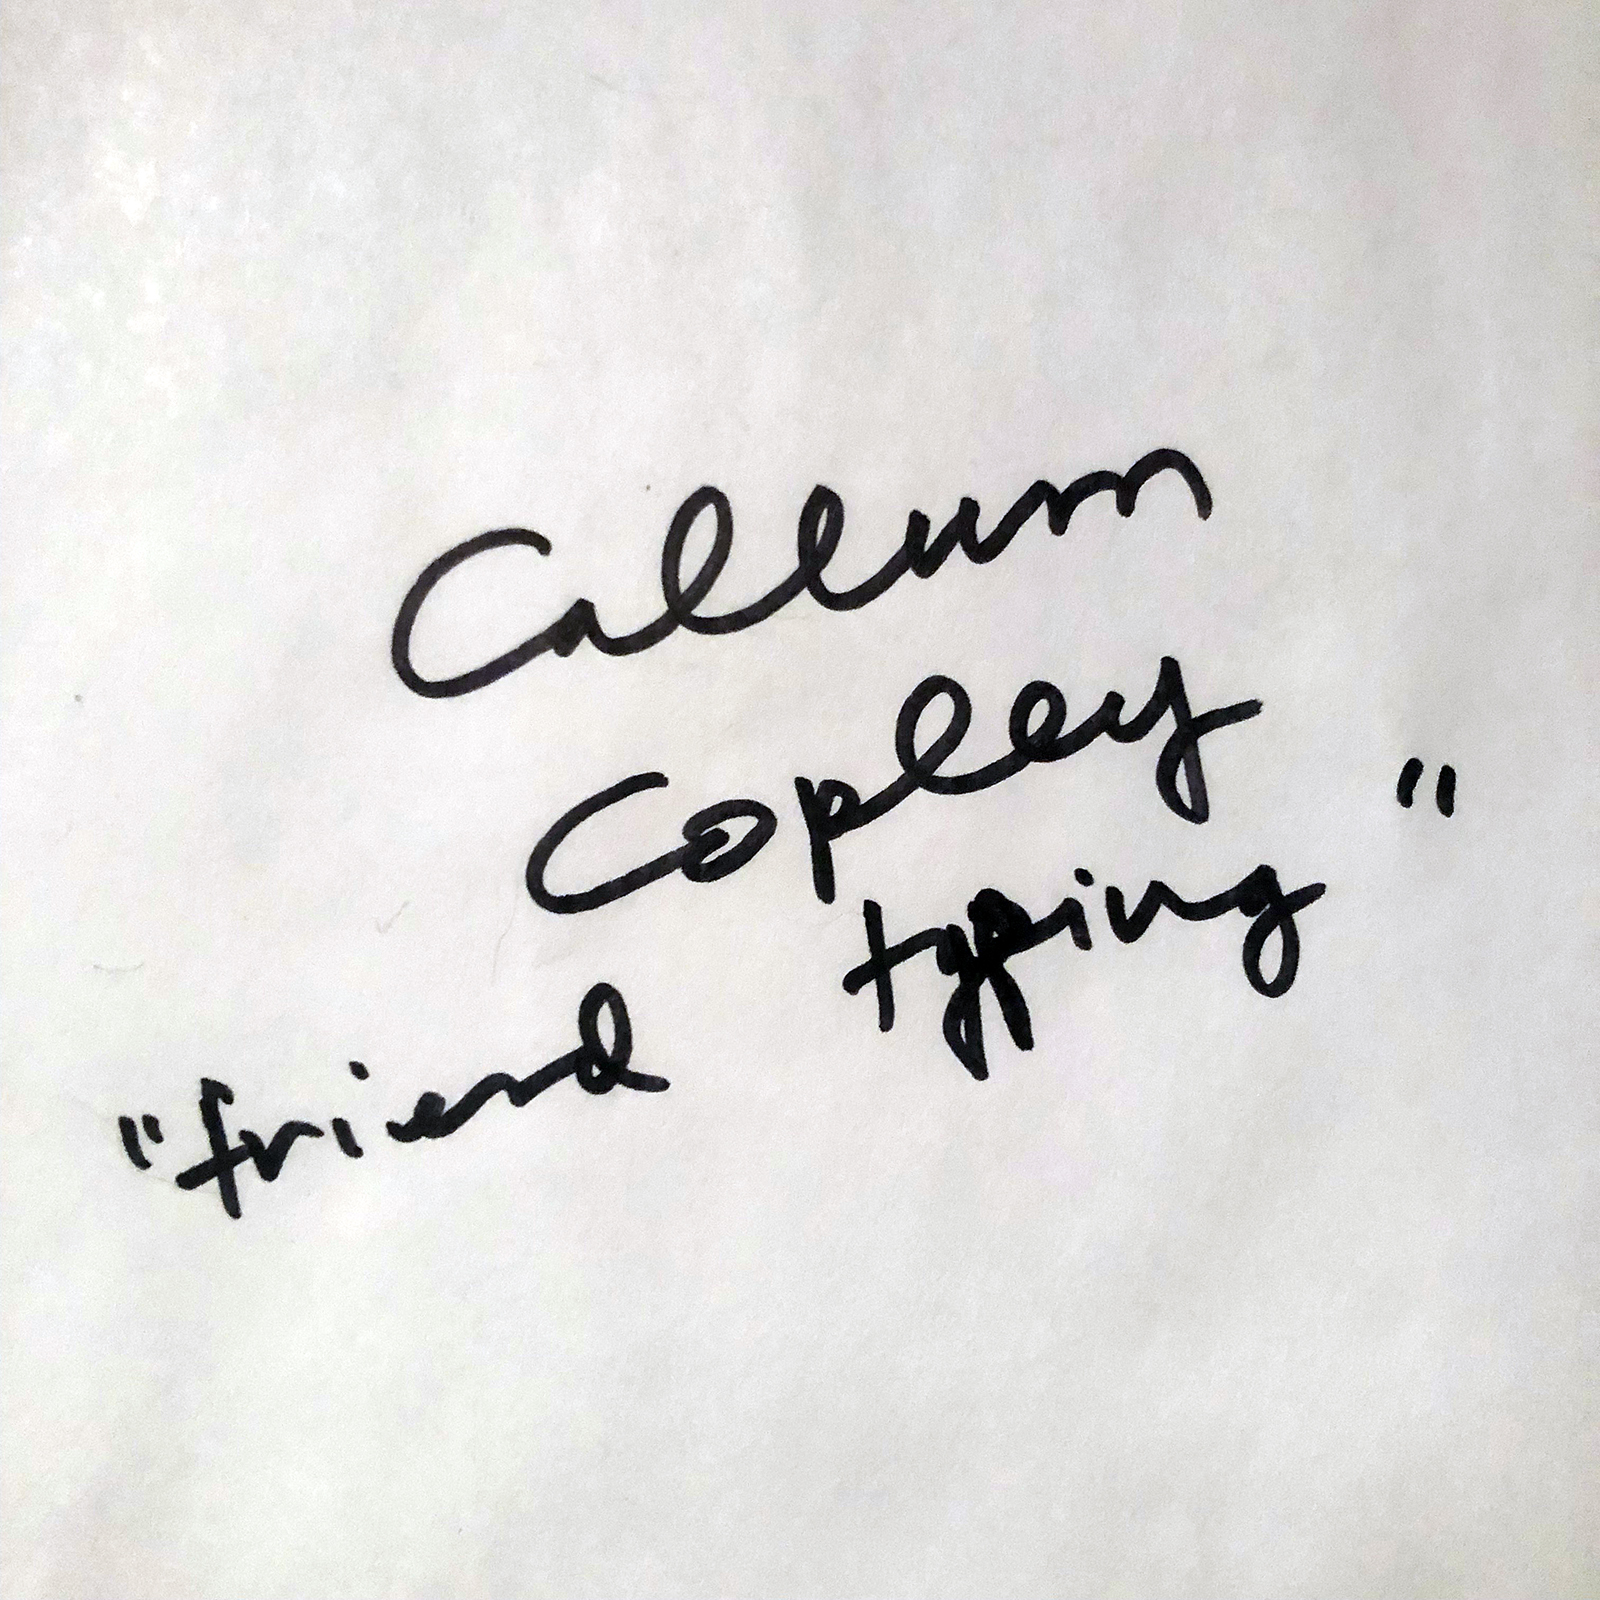 Callum
Copley
"friend typing"